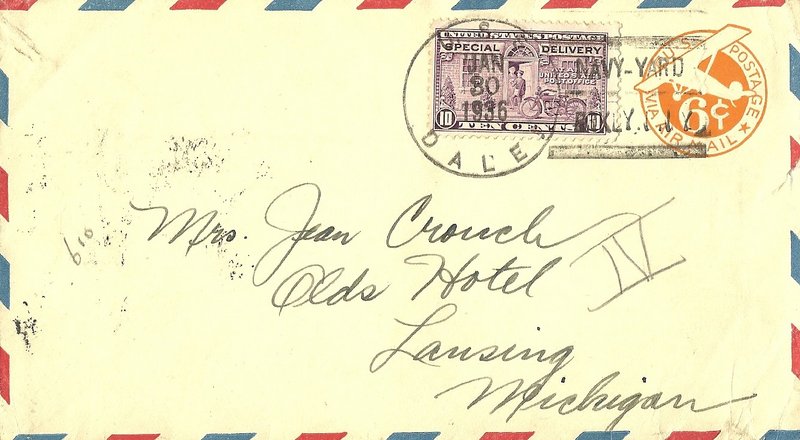 UNITED STATES POSTAGE
SPECIAL DELIVERY
AT ANY
UNITED STATES
POST OFFICE
10 TEN CENTS 10
U.S.S.
JAN
30
1936
DALE
NAVY-YARD
BKLY. N.Y.
U.S. POSTAGE
6¢
VIA AIR MAIL
Mrs. Jean Crouch
Olds Hotel
Lansing
Michigan
IV
610